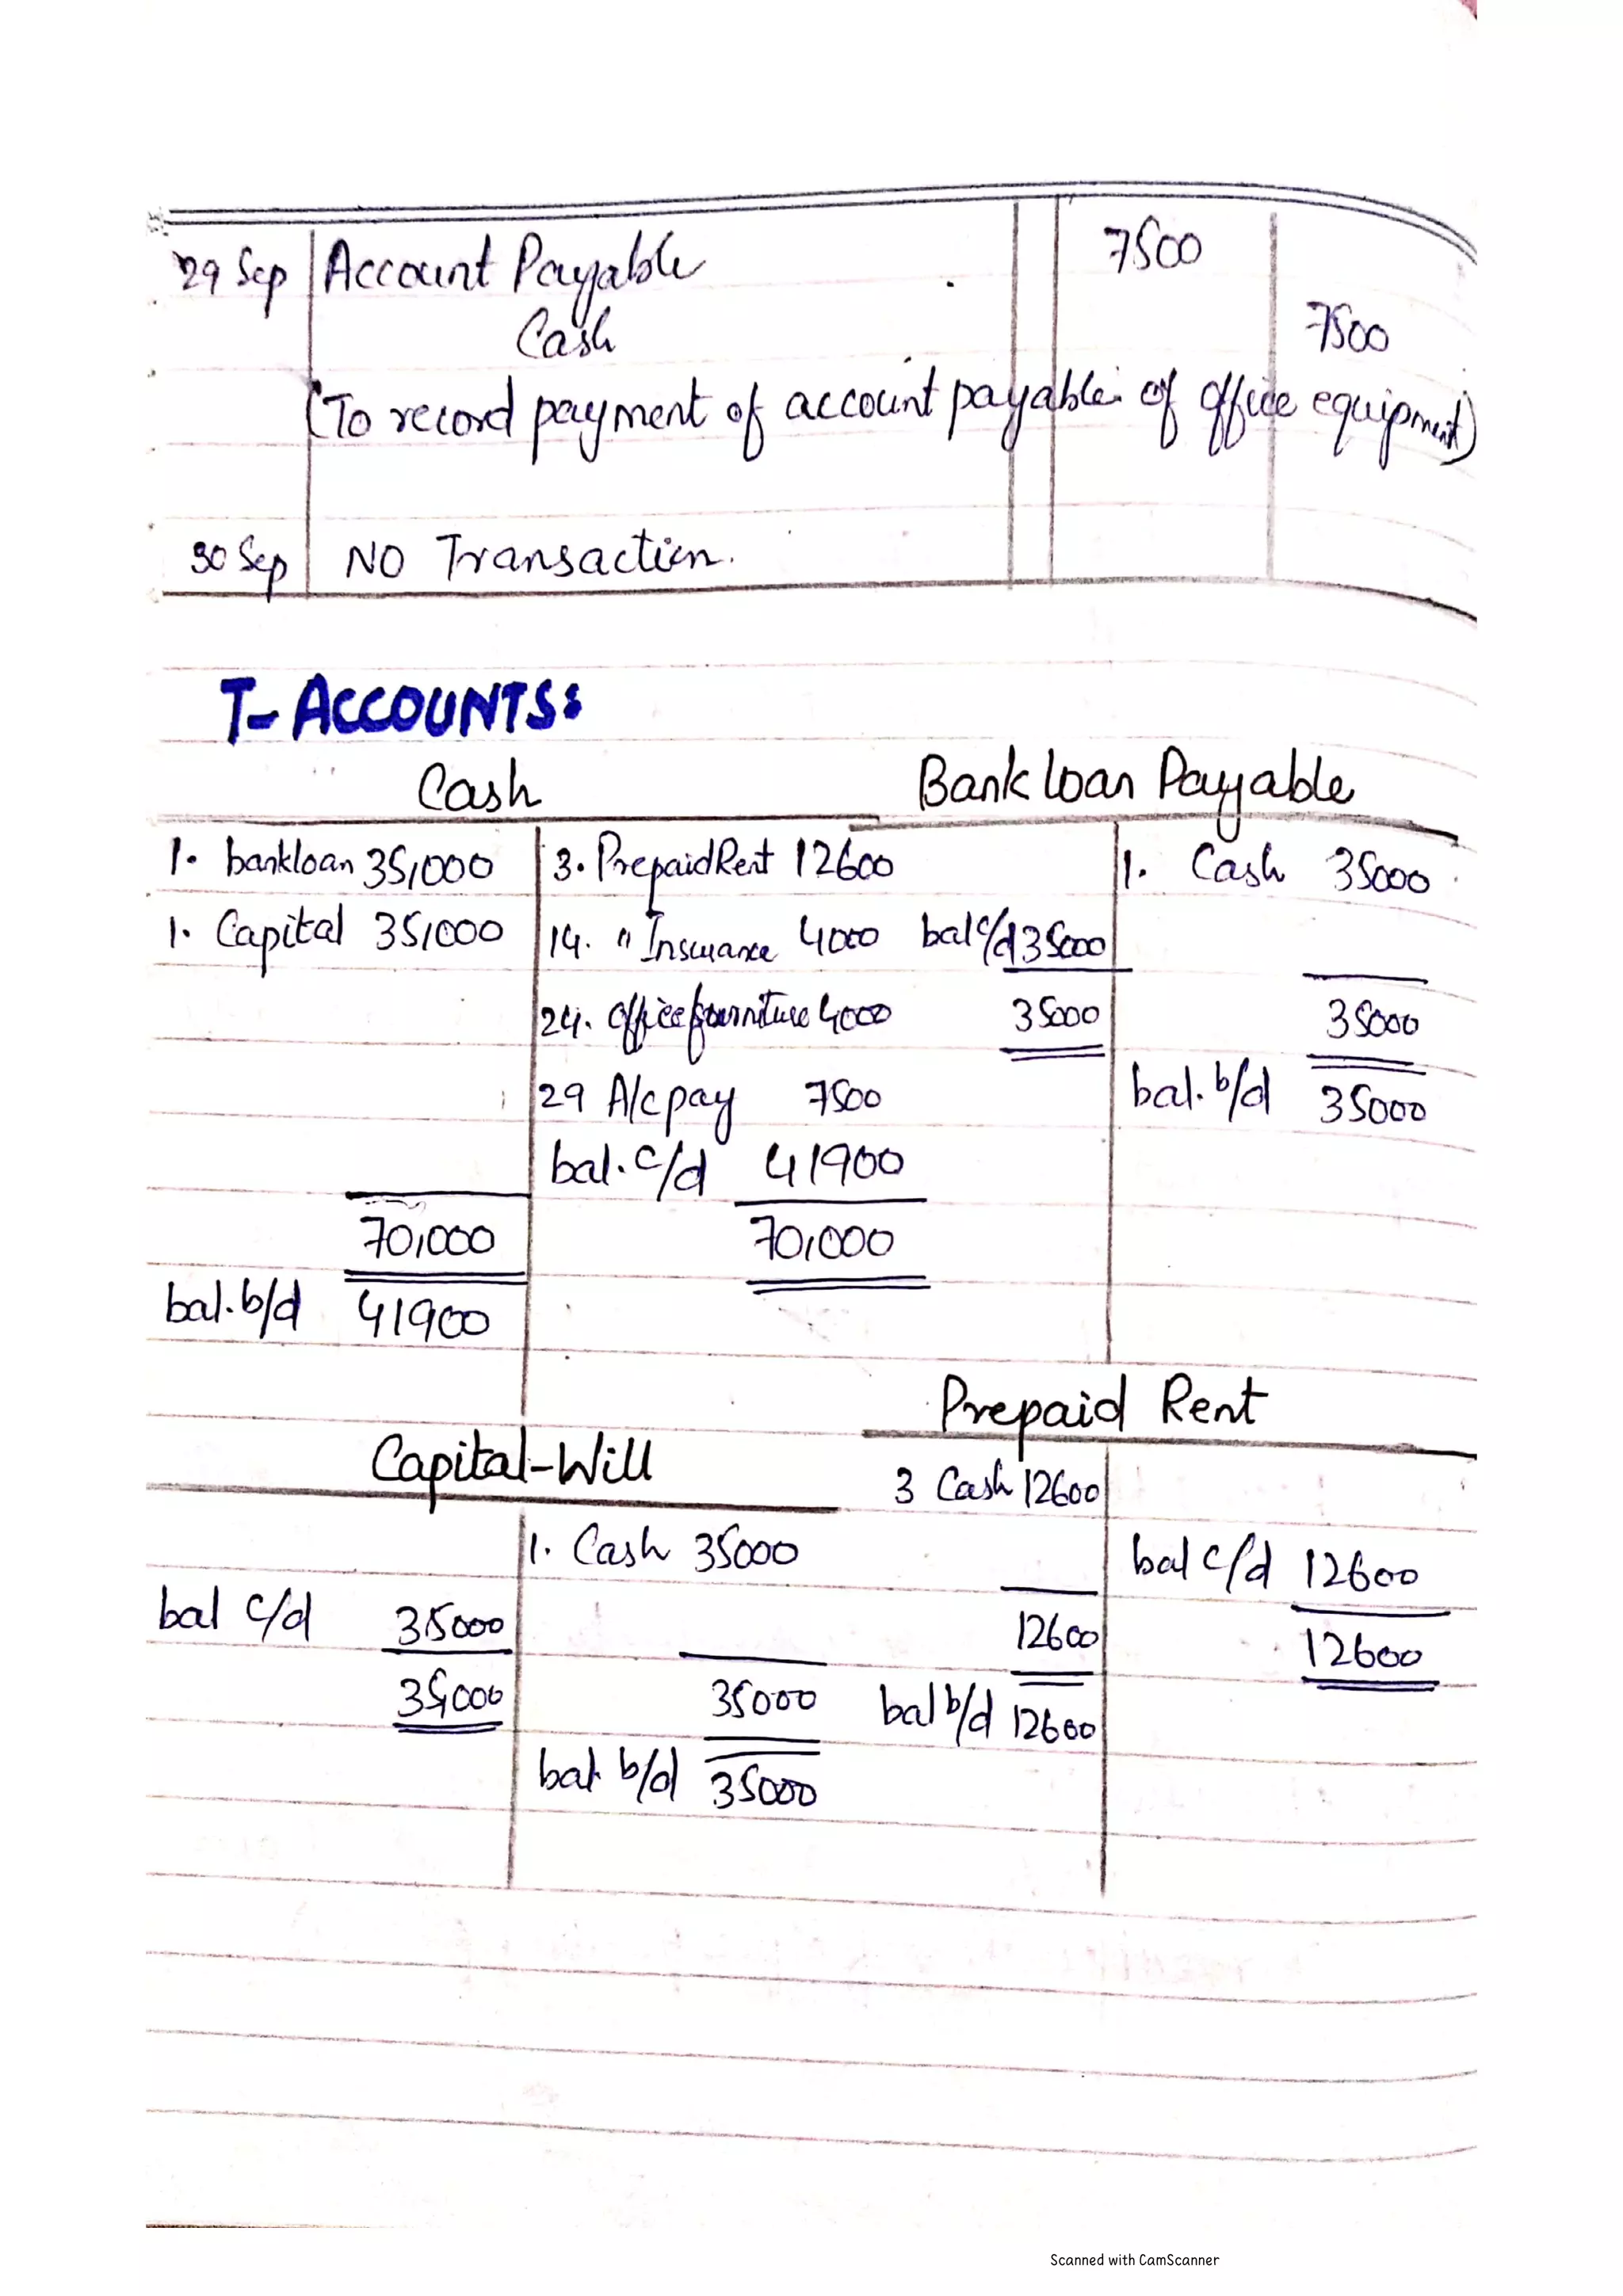 29 Sep Account Payable 7500
Cash 7500
(To record payment of account payable of office equipment)
30 Sep NO Transaction.
T-ACCOUNTS:
Cash
1. bankloan 35,000 3. Prepaid Rent 12600
1. Capital 35,000 14. " Insurance 4000
24. office furniture 4000
29 A/c pay 7500
bal. c/d 41900
70,000 70,000
bal. b/d 41900
Bank loan Payable
1. Cash 35000
bal c/d 35000
35000 35000
bal. b/d 35000
Capital-Will
1. Cash 35000
bal c/d 35000
35000 35000
bal b/d 35000
Prepaid Rent
3 Cash 12600
bal c/d 12600
12600 12600
bal b/d 12600
Scanned with CamScanner